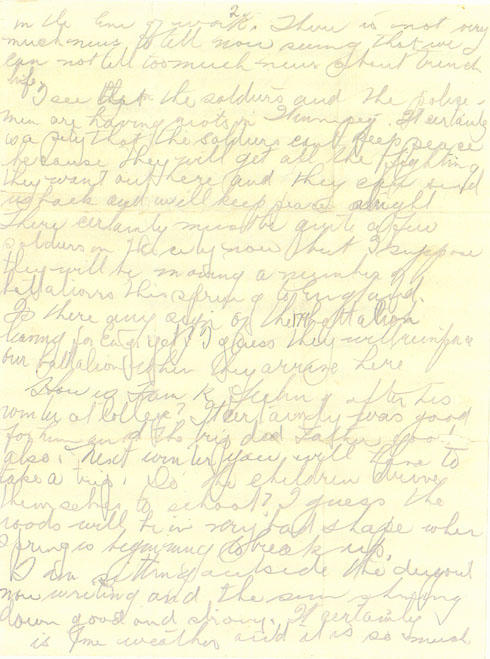 2
in the line of work. There is not very
much news to tell now seeing that we
can not tell too much news about trench
life.
I see that the soldiers and the police-
men are having riots in Winnipeg. It certainly
is a pity that the soldiers can't keep peace
because they will get all the fighting
they want out here and they can send
us back and we'll keep peace alright
There certainly must be quite a few
soldiers in the city now but I suppose
they will be moving a number of
battalions this spring to England.
Is there any sign of the battalion
leaving for Eng. yet? I guess they will reinforce
our battalion when they arrive here
How is Frank feeling after his
winter at college? It certainly was good
for him and the trip did Father good
also. Next winter you will have to
take a trip. Do the children drive
themselves to school? I guess the
roads will be in very bad shape when
spring is beginning to break up.
I am sitting outside the dugout
now writing and the sun shining
down good and strong. It certainly
is fine weather and it is so much